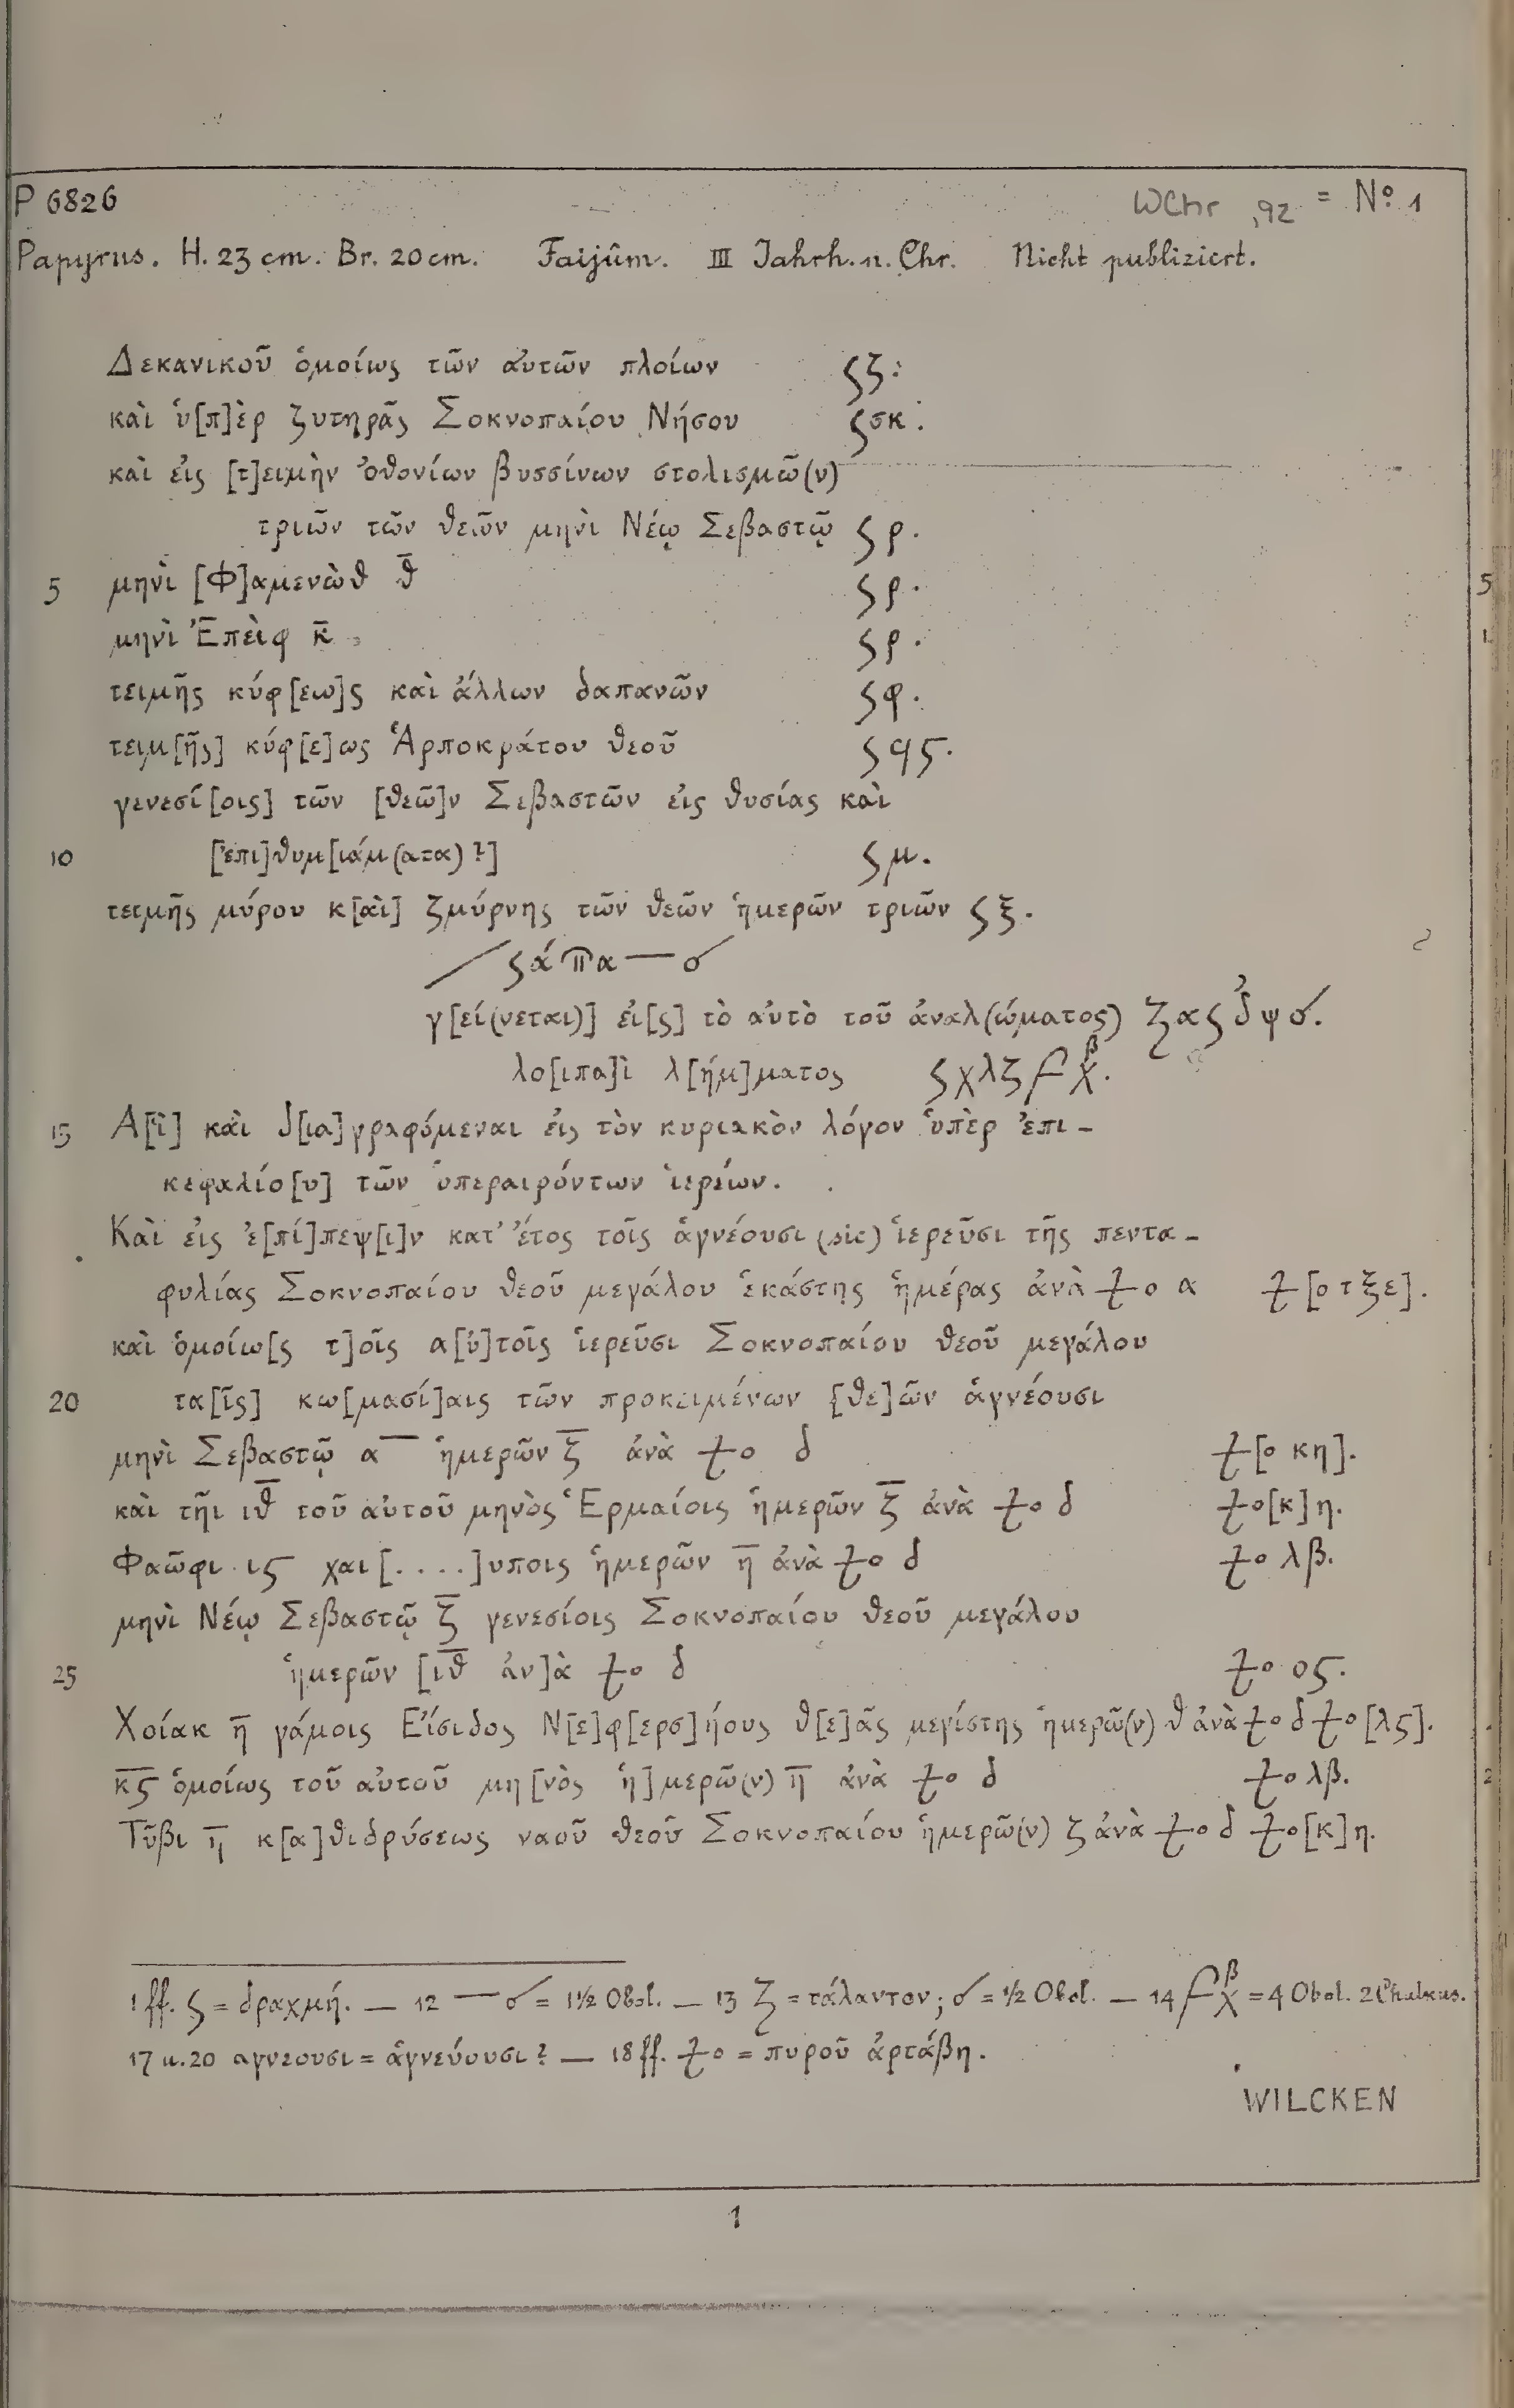 P 6826
WChr 92 = No. 1
Papyrus. H. 23 cm. Br. 20 cm. Faijûm. III Jahrh. n. Chr. Nicht publiziert.
Δεκανικοῦ ὁμοίως τῶν αὐτῶν πλοίων ϛζ:
καὶ ὑ[π]ὲρ ζυτηρᾶς Σοκνοπαίου Νήσου ϛσκ.
καὶ εἰς [τ]ειμὴν ὀθονίων βυσσίνων στολισμῶ(ν)
τριῶν τῶν θεῶν μηνὶ Νέῳ Σεβαστῷ ϛρ.
5 μηνὶ [Φ]αμενὼθ θ̅ ϛρ. 5
μηνὶ Ἐπεὶφ κ̅ ϛρ.
τειμῆς κύφ[εω]ς καὶ ἄλλων δαπανῶν ϛφ.
τειμ[ῆς] κύφ[ε]ως Ἁρποκράτου θεοῦ ϛϥϛ.
γενεσί[οις] τῶν [θεῶ]ν Σεβαστῶν εἰς θυσίας καὶ
10 [ἐπι]θυμ[ιάμ(ατα)?] ϛμ.
τειμῆς μύρου κ[αὶ] ζμύρνης τῶν θεῶν ἡμερῶν τριῶν ϛξ.
╱ ϛ ά π̅α — σ
γ[εί(νεται)] εἰ[ς] τὸ αὐτὸ τοῦ ἀναλ(ώματος) ζ α ϛ δ̓ ψ σ.
λο[ιπα]ὶ λ[ήμ]ματος ϛχλζ ƒ χβ.
15 Α[ἳ] καὶ δ[ια]γραφόμεναι εἰς τὸν κυριακὸν λόγον ὑπὲρ ἐπι-
κεφαλίο[υ] τῶν ὑπεραιρόντων ἱερέων.
Καὶ εἰς ἐ[πί]πεψ[ι]ν κατ' ἔτος τοῖς ἁγνέουσι (sic) ἱερεῦσι τῆς πεντα-
φυλίας Σοκνοπαίου θεοῦ μεγάλου ἑκάστης ἡμέρας ἀνὰ ⳨ο α ⳨[ο τξε].
καὶ ὁμοίω[ς τ]οῖς α[ὐ]τοῖς ἱερεῦσι Σοκνοπαίου θεοῦ μεγάλου
20 τα[ῖς] κω[μασί]αις τῶν προκειμένων [θε]ῶν ἁγνέουσι
μηνὶ Σεβαστῷ α̅ ἡμερῶν ζ̅ ἀνὰ ⳨ο δ ⳨[ο κη].
καὶ τῆι ιθ̅ τοῦ αὐτοῦ μηνὸς Ἑρμαίοις ἡμερῶν ζ̅ ἀνὰ ⳨ο δ ⳨ο[κ]η.
Φαῶφι ιϛ χαι[....]υποις ἡμερῶν η̅ ἀνὰ ⳨ο δ ⳨ο λβ.
μηνὶ Νέῳ Σεβαστῷ ζ̅ γενεσίοις Σοκνοπαίου θεοῦ μεγάλου
25 ἡμερῶν [ιθ̅ ἀν]ὰ ⳨ο δ ⳨ο οϛ.
Χοίακ η̅ γάμοις Εἴσιδος Ν[ε]φ[ερσ]ήους θ[ε]ᾶς μεγίστης ἡμερῶ(ν) θ ἀνὰ ⳨ο δ ⳨ο [λϛ].
κ̅ϛ̅ ὁμοίως τοῦ αὐτοῦ μη[νὸς ἡ]μερῶ(ν) η̅ ἀνὰ ⳨ο δ ⳨ο λβ.
Τῦβι η̅ κ[α]θιδρύσεως ναοῦ θεοῦ Σοκνοπαίου ἡμερῶ(ν) ζ ἀνὰ ⳨ο δ ⳨ο[κ]η.
1 ff. ϛ = δραχμή. — 12 — σ = 1½ Obol. — 13 ζ = τάλαντον; σ = ½ Obol. — 14 ƒ χβ = 4 Obol. 2 Chalkus.
17 u. 20 αγνεουσι = ἁγνεύουσι? — 18 ff. ⳨ο = πυροῦ ἀρτάβη.
WILCKEN
1